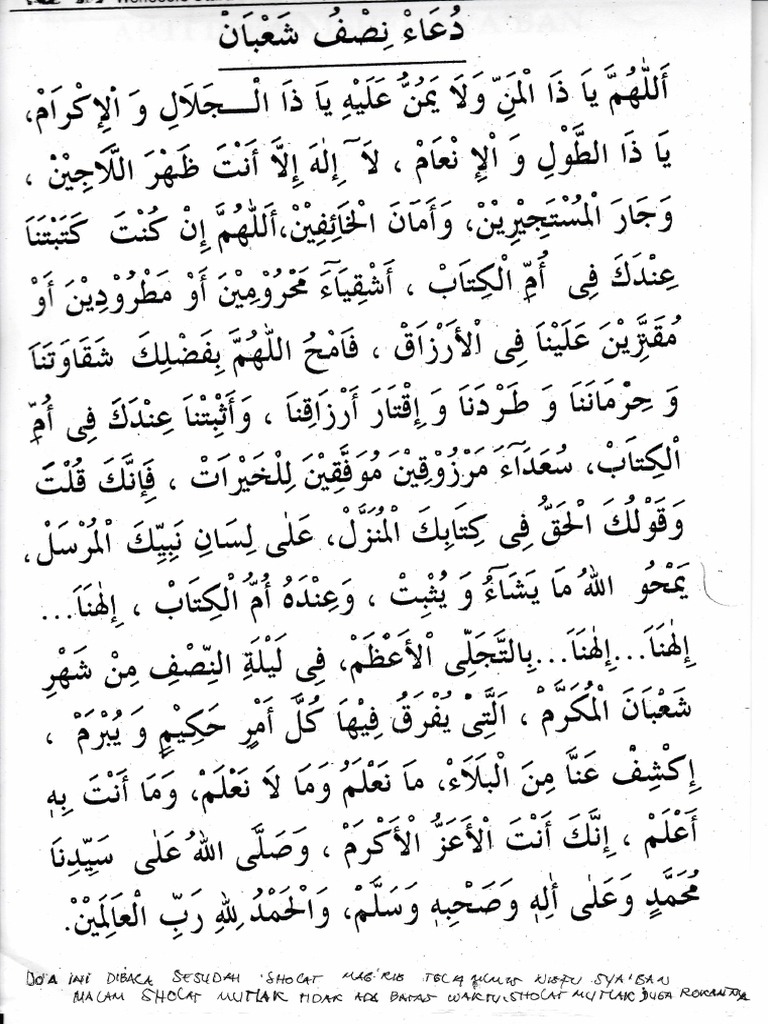 دُعَاءْ نِصْفُ شَعْبَانْ
أَللّٰهُمَّ يَا ذَا الْمَنِّ وَلَا يَمُنُّ عَلَيْهِ يَا ذَا الْـــجَلَالِ وَ الْإِكْرَامْ،
يَا ذَا الطَّوْلِ وَ الْإِ نْعَامْ ، لَا ٓ إِلٰهَ إِلَّا أَنْتَ ظَهْرَ اللَّاجِيْنْ ،
وَجَارَ الْمُسْتَجِيْرِيْنْ، وَأَمَانَ الْخَائِفِيْنْ،أَللّٰهُمَّ إِنْ كُنْتَ كَتَبْتَنَا
عِنْدَكَ فِى أُمِّ الْكِتَابْ ، أَشْقِيَآءَ مَحْرُوْمِيْنَ أَوْ مَطْرُوْدِيْنَ أَوْ
مُقَتَّرِيْنَ عَلَيْنَا فِى الْأَرْزَاقْ ، فَامْحُ اللّٰهُمَّ بِفَضْلِكَ شَقَاوَتَنَا
وَ حِرْمَانَنَا وَ طَرْدَنَا وَ إِقْتَارَ أَرْزَاقِنَا ، وَأَثْبِتْنَا عِنْدَكَ فِى أُمِّ
الْكِتَابْ، سُعَدَآءَ مَرْزُوْقِيْنَ مُوَفَّقِيْنَ لِلْخَيْرَاتْ ، فَإِنَّكَ قُلْتَ
وَقَوْلُكَ الْحَقُّ فِى كِتَابِكَ الْمُنَزَّلْ، عَلٰى لِسَانِ نَبِيِّكَ الْمُرْسَلْ،
يَمْحُو اللهُ مَا يَشَآءُ وَ يُثْبِتْ ، وَعِنْدَهُ أُمُّ الْكِتَابْ ، إِلٰهَنَا...
إِلٰهَنَا...إِلٰهَنَا...بِالتَّجَلِّى الْأَعْظَمْ، فِى لَيْلَةِ النِّصْفِ مِنْ شَهْرِ
شَعْبَانَ الْمُكَرَّمْ ، اَلَّتِىْ يُفْرَقُ فِيْهَا كُلُّ أَمْرٍ حَكِيْمٍ وَ يُبْرَمْ ،
إِكْشِفْ عَنَّا مِنَ الْبَلَاءْ، مَا نَعْلَمُ وَمَا لَا نَعْلَمْ، وَمَا أَنْتَ بِهٖ
أَعْلَمْ ، إِنَّكَ أَنْتَ الْأَعَزُّ الْأَكْرَمْ ، وَصَلَّى اللهُ عَلٰى سَيِّدِنَا
مُحَمَّدٍ وَعَلٰى أٰلِهٖ وَصَحْبِهٖ وَسَلَّمْ، وَالْحَمْدُ لِلهِ رَبِّ الْعَالَمِيْنْ.
DO'A INI DIBACA SESUDAH SHOLAT MAG'RIB NISFU SYA'BAN
MALAM SHOLAT MUTLAK TIDAK ADA BATAS WAKTU. SHOLAT MUTLAK JUGA